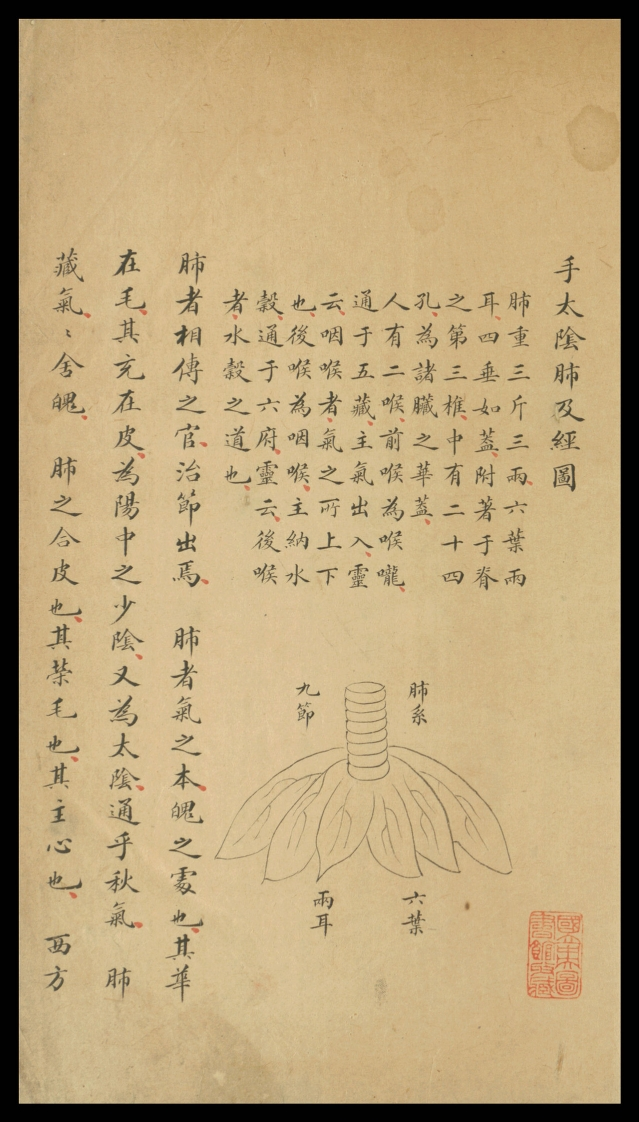 手太陰肺及經圖
肺重三斤三兩、六葉兩
耳、四垂如蓋、附著于脊
之第三椎、中有二十四
孔、為諸臟之華蓋、
人有二喉、前喉為喉嚨、
通于五藏、主氣出入、靈
云、咽喉者、氣之所上下
也、後喉為咽喉、主納水
穀、通于六府、靈云、後喉
者、水穀之道也、
肺系
九節
六葉
兩耳
肺者相傳之官、治節出焉、 肺者氣之本、魄之處也、其華
在毛、其充在皮、為陽中之少陰、又為太陰、通乎秋氣、 肺
藏氣、〻舍魄、 肺之合皮也、其榮毛也、其主心也、 西方
國立中央圖
書館收藏